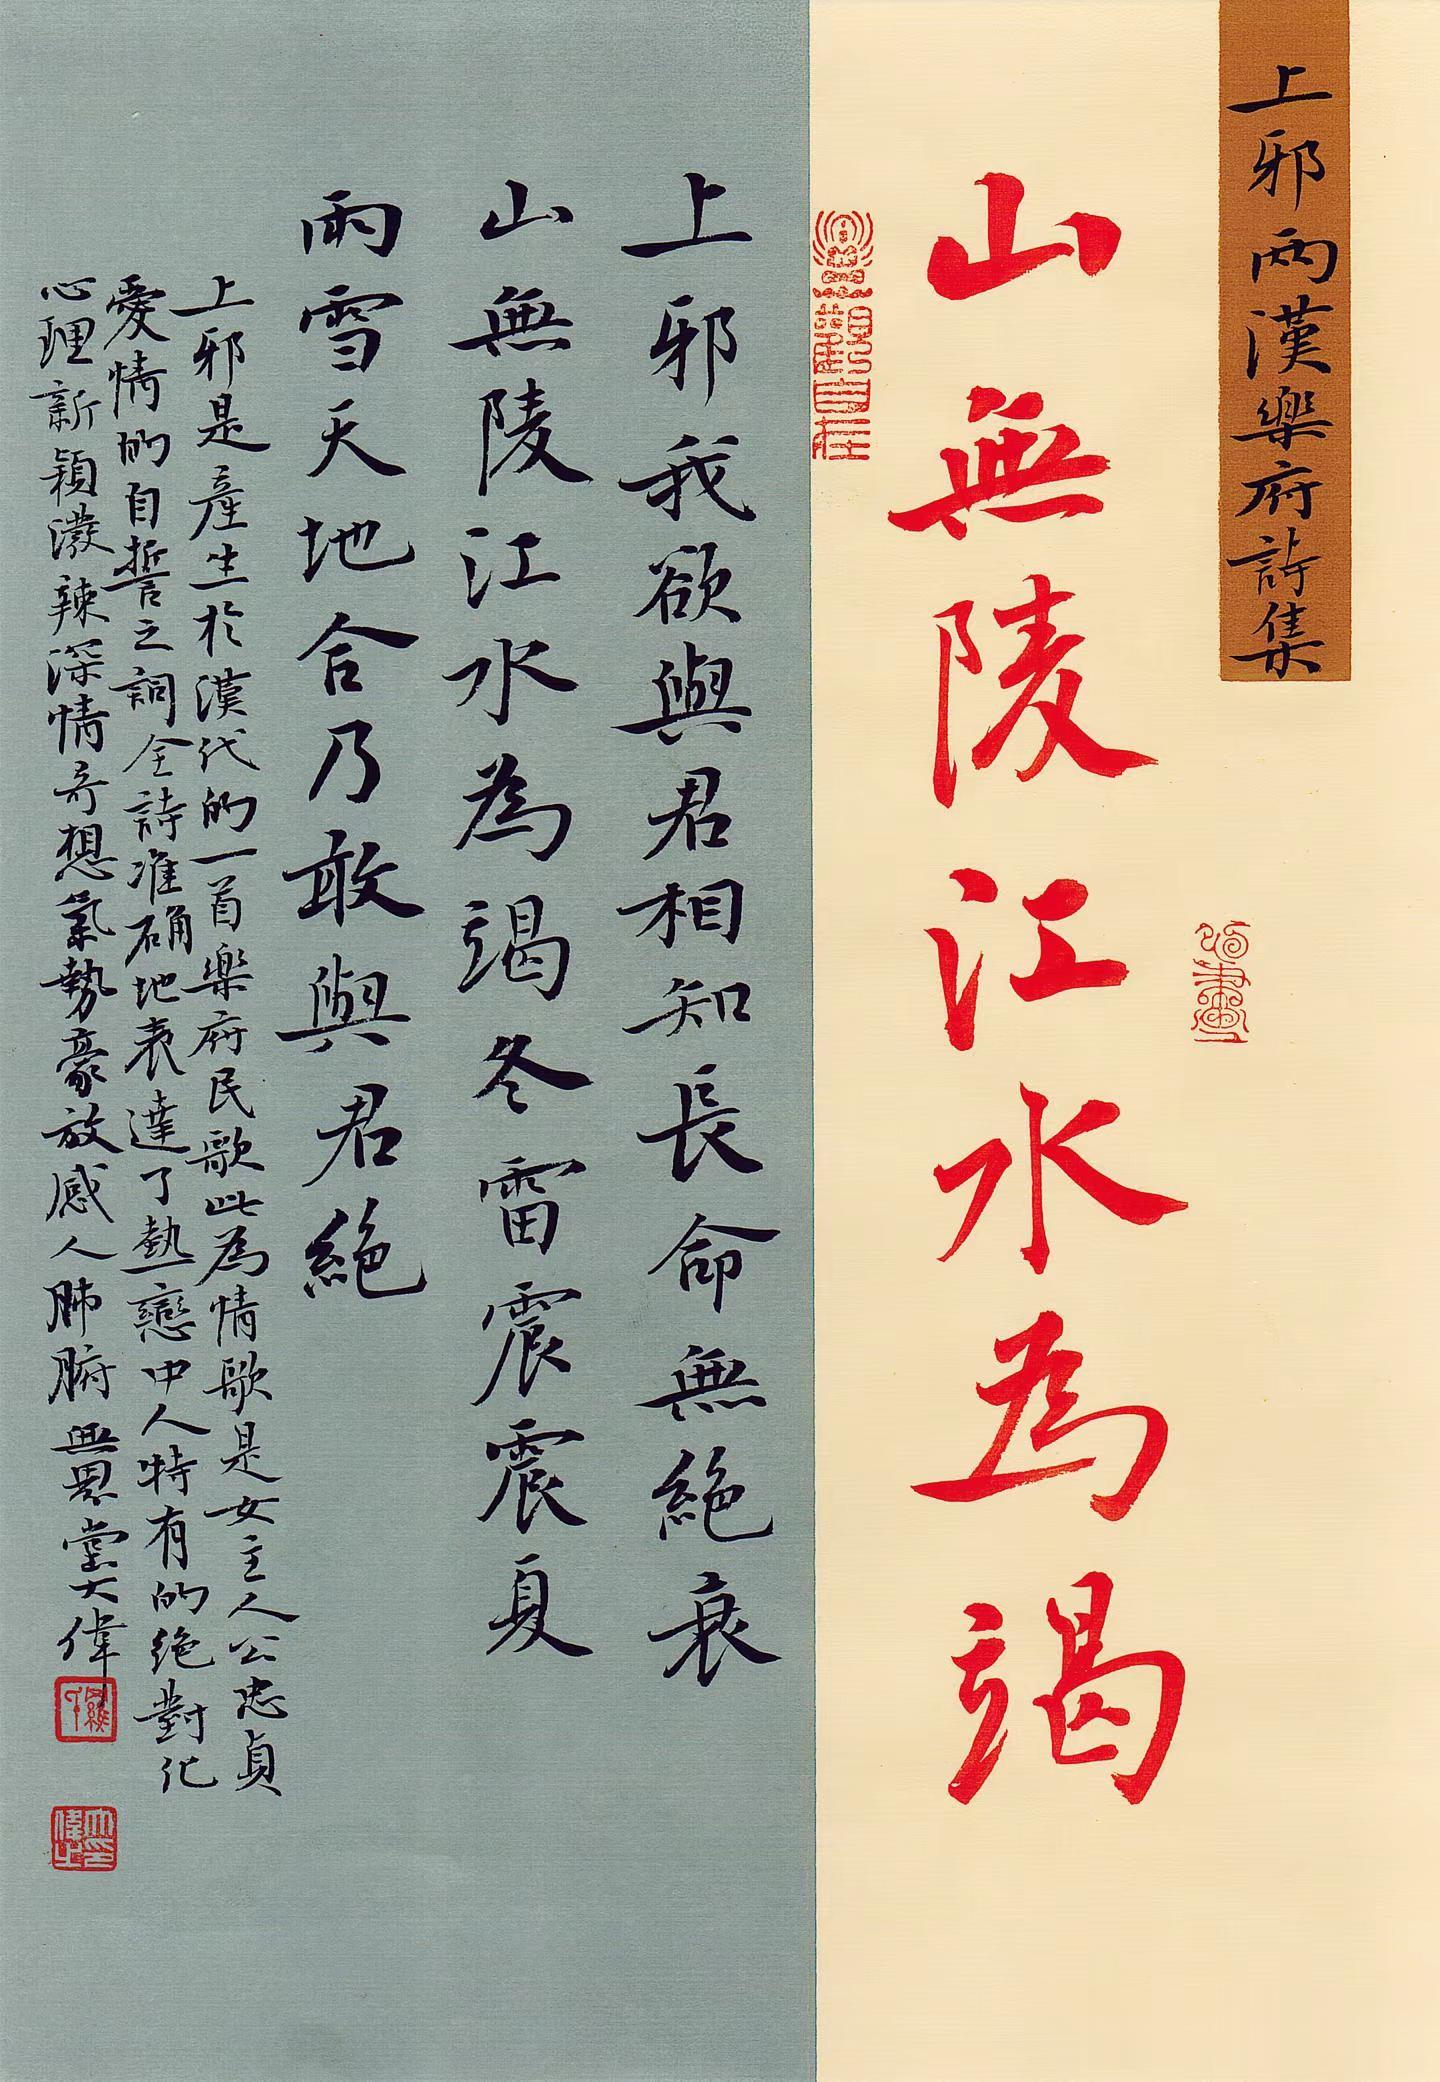 上邪兩漢樂府詩集
山無陵江水為竭
上邪我欲與君相知長命無絕衰
山無陵江水為竭冬雷震震夏
雨雪天地合乃敢與君絕
上邪是產生於漢代的一首樂府民歌此為情歌是女主人公忠貞
愛情的自誓之詞全詩准确地表達了熱戀中人特有的绝對化
心理新穎潑辣深情奇想氣勢豪放感人肺腑無思堂大偉